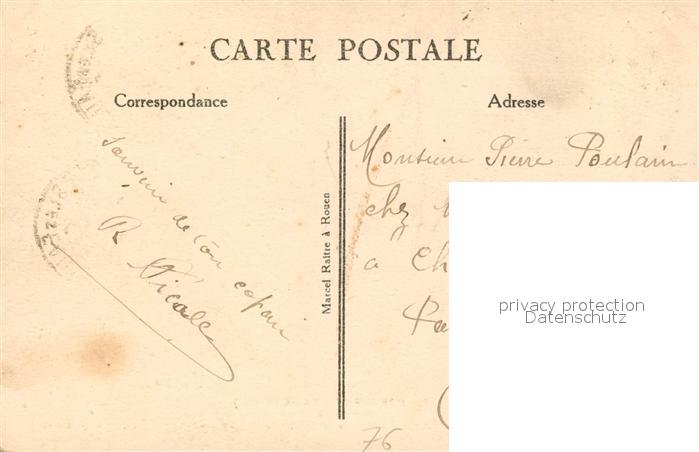 CARTE POSTALE
Correspondance
Adresse
Souvenir de ton copain
R Nicolle
Marcel Raître à Rouen
Monsieur Pierre Poulain
chez
a Ch
Pa
76
privacy protection
Datenschutz